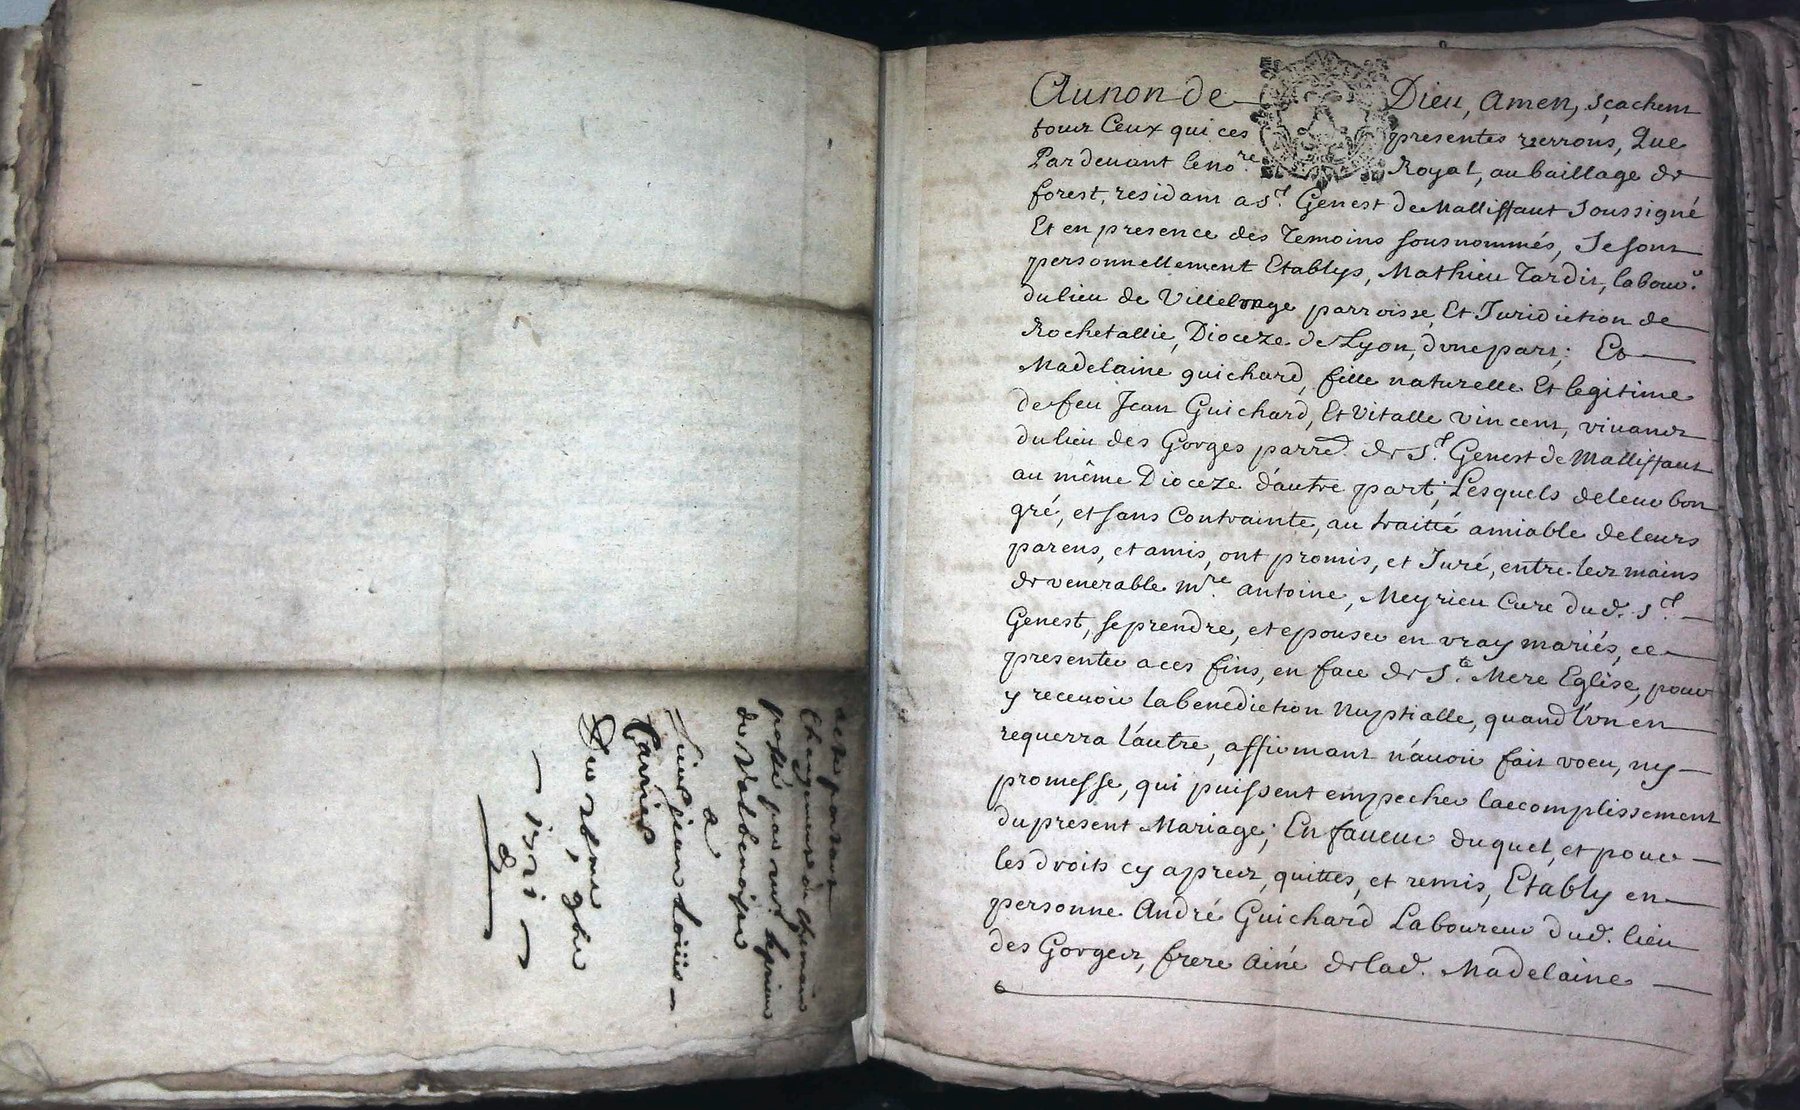 acte portant
Changement de chemain
passé par
de Valbenoiste
a
Sieur jean Loüis
Carrier
Du
1721
Au non de Dieu, Amen, sçachent
tous Ceux qui ces presentes verrons, Que
Par devant le no.re Royal, au baillage de
forest, residant a S.t Genest de Malliffaut Soussigné
Et en presence des Temoins sousnommés, Se sont
personnellement Etablys, Mathieu Tardis, labour.r
du lieu de Villebrage parroisse, Et Juridiction de
Rochetallie, Dioceze de Lyon, d'une part; Et
Madelaine guichard, fille naturelle Et legitime
de feu Jean Guichard, Et Vitalle Vincent, vivants
du lieu des Gorges parr.e de S.t Genest de Malliffaut
au même Dioceze d'autre part; Lesquels de leur bon
gré, et sans Contrainte, au traitté amiable de leurs
parens, et amis, ont promis, et Juré, entre les mains
de venerable m.re antoine, Meyrieu Cure dud. S.t
Genest, se prendre, et epouser en vray mariés, ce
presenter a ces fins, en face de S.te Mere Eglise, pour
y recevoir la benediction Nuptialle, quand l'un en
requerra l'autre, affirmant n'avoir fait voeu, ny
promesse, qui puissent empecher l'accomplissement
du present Mariage; En faveur duquel, et pour
les droits cy apres, quittes, et remis, Etably en
personne André Guichard Laboureur dud. lieu
des Gorges, frere ainé de lad. Madelaine